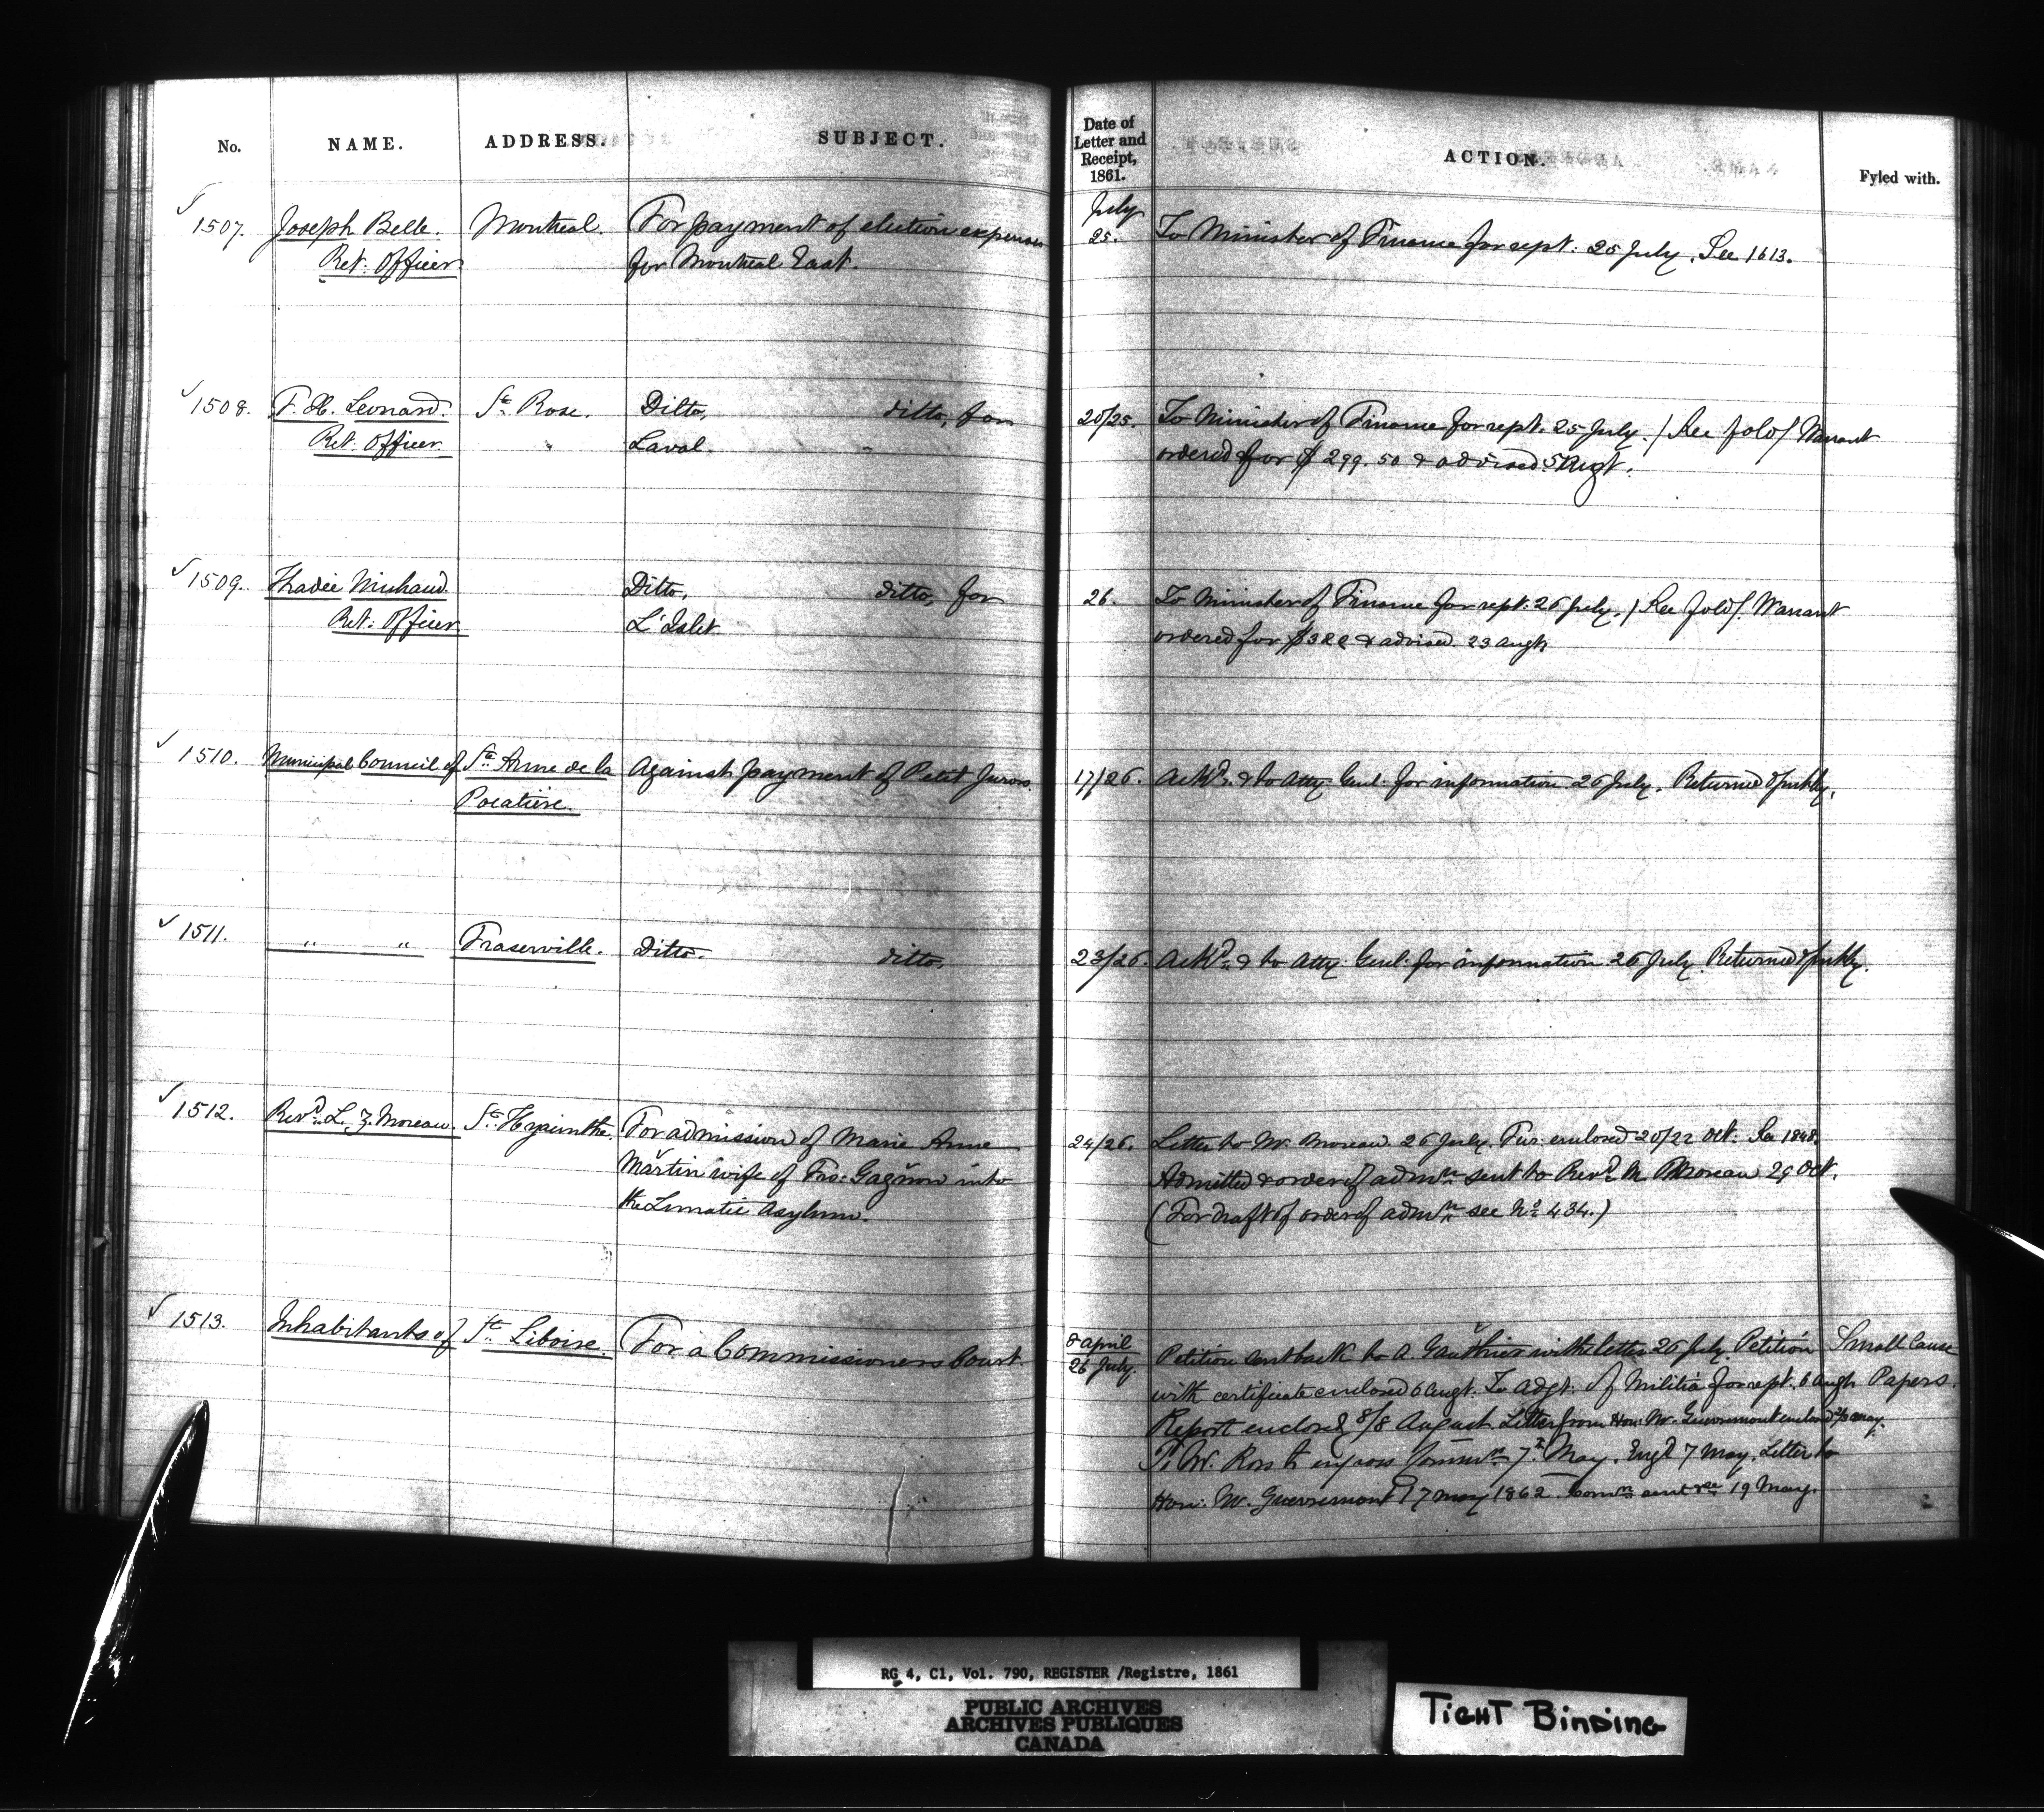 No. NAME. ADDRESS. SUBJECT. Date of Letter and Receipt, 1861. ACTION. Fyled with.
1507. Joseph Belle. Montreal. For payment of election expenses July 25. To Minister of Finance for rept: 25 July. See 1613.
Ret: Officer for Montreal East.
1508. F. H. Leonard. Ste Rose. Ditto, ditto, for 20/25. To Minister of Finance for rept. 25 July. / See fold / Warrant
Ret: Officer " Laval. " ordered for $299.50 & advised 5 Augt.
1509. Thadée Michaud Ditto, ditto, for 26. To Minister of Finance for rept: 26 July. / See fold / Warrant
Ret: Officer L'Islet. ordered for & advised 23 Augt
1510. Municipal Council of Ste Anne de la Against payment of Petit Jurors. 17/26. Ackd. & to Atty. Genl. for information 26 July. Returned
Pocatière.
1511. " " Fraserville. Ditto. ditto. 23/26. Ackd. & to Atty. Genl. for information 26 July. Returned
1512. Revd. L. Z. Moreau. St. Hyacinthe. For admission of Marie Anne 24/26. Letter to Mr. Moreau 26 July. Fur: enclosed 20/22 Oct. See 1848.
Martin wife of Frs: Gagnon into Admitted & order of admn. sent to Revd. Mr. Moreau 29 Oct.
the Lunatic Asylum. (For draft of order of admn. see No. 434.)
1513. Inhabitants of St. Liboire. For a Commissioners Court. 8 April 26 July. Petition sent back to A. Gauthier with letter 26 July. Petition Small Cause
with certificate enclosed 6 Augt. To Adgt. of Militia for rept. 6 Augt Papers.
Report enclosed 8/8 August. Letter from Hon: Mr. Guevremont enclosed
To W. Ross to engross Commn. 7th May. Engd 7 May. Letter to
Hon: Mr. Guevremont 7 May 1862. Commn. sent 19 May.
RG 4, C1, Vol. 790, REGISTER /Registre, 1861
PUBLIC ARCHIVES
ARCHIVES PUBLIQUES
CANADA
TIGHT BINDING